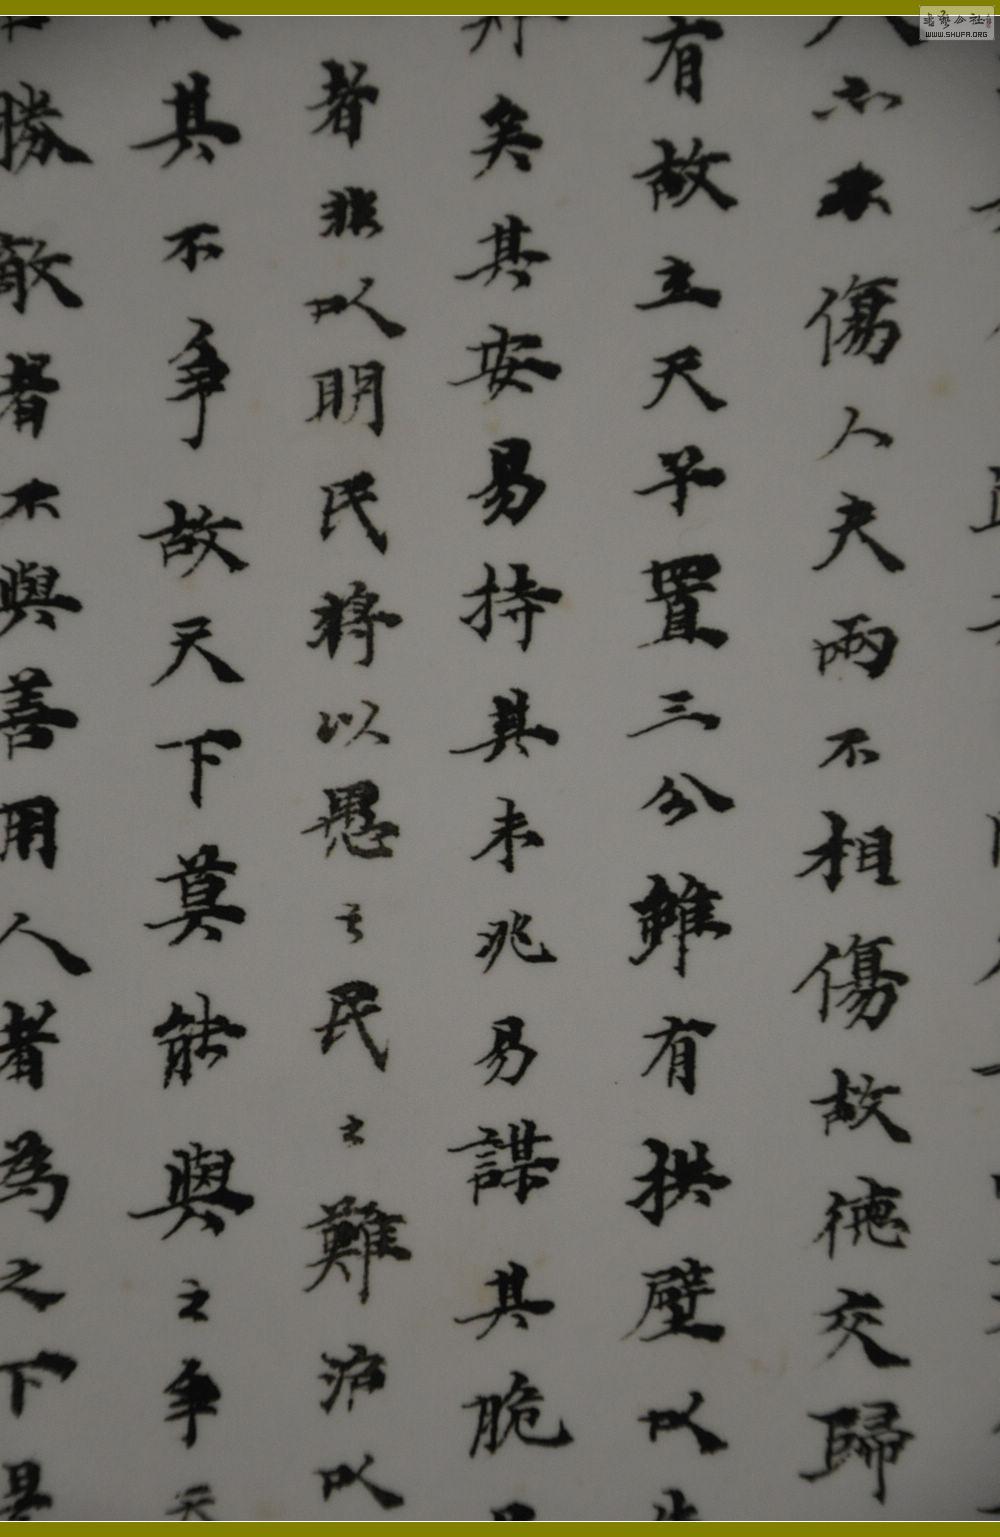 人亦不傷人夫兩不相傷故德交歸
有故立天子置三公雖有拱璧以先
矣其安易持其未兆易謀其脆
者非以明民將以愚之民之難治以
其不爭故天下莫能與之爭天
勝敵者不與善用人者為之下是
書藝公社
WWW.SHUFA.ORG